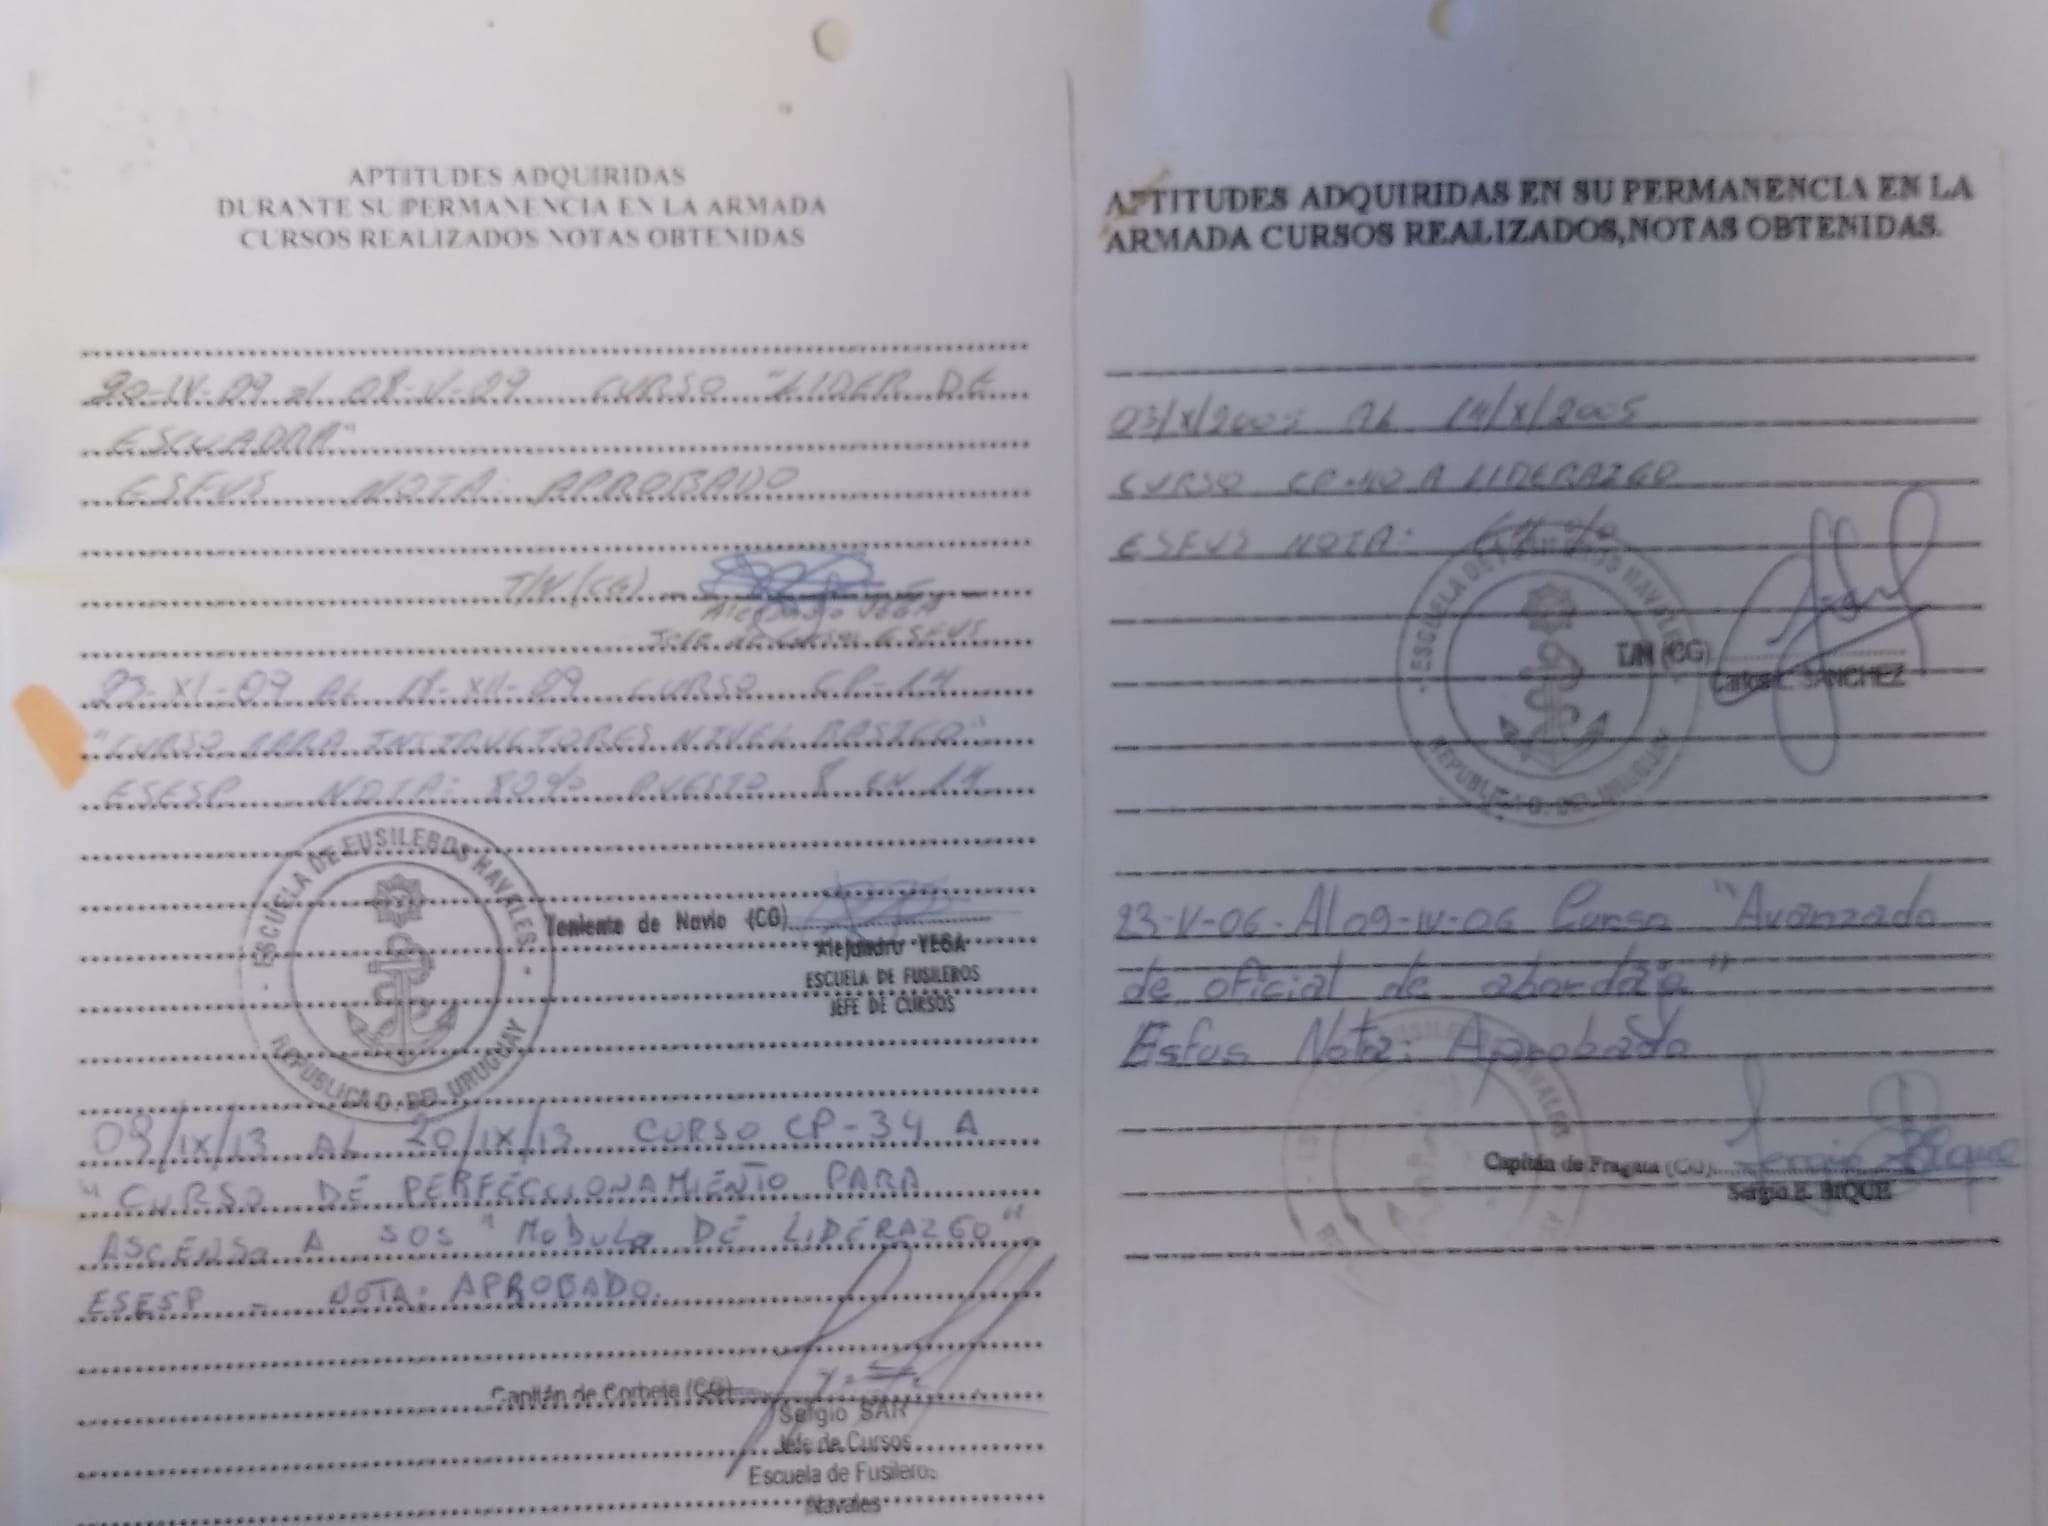 APTITUDES ADQUIRIDAS
DURANTE SU PERMANENCIA EN LA ARMADA
CURSOS REALIZADOS NOTAS OBTENIDAS
-IV-09 al 08-V-09 CURSO "LIDER DE
ESCUADRA"
ESFUS NOTA: APROBADO
T/N (CG)
Alejandro VEGA
Jefe de Cursos ESFUS
23-XI-09 AL -XII-09 CURSO CP-14
"CURSO PARA INSTRUCTORES NIVEL BASICO"
ESESP NOTA: 80% PUESTO 8 EN 14
ESCUELA DE FUSILEROS NAVALES
REPUBLICA O. DEL URUGUAY
Teniente de Navío (CG)
Alejandro VEGA
ESCUELA DE FUSILEROS
JEFE DE CURSOS
09/IX/13 AL 20/IX/13 CURSO CP-34 A
"CURSO DE PERFECCIONAMIENTO PARA
ASCENSO A SOS "MODULO DE LIDERAZGO"
ESESP - NOTA: APROBADO.
Capitán de Corbeta (CG)
Sergio SAR
Jefe de Cursos
Escuela de Fusileros
Navales
APTITUDES ADQUIRIDAS EN SU PERMANENCIA EN LA
ARMADA CURSOS REALIZADOS,NOTAS OBTENIDAS.
03/X/2005 AL 14/X/2005
CURSO CP-40 A LIDERAZGO
ESFUS NOTA:
ESCUELA DE FUSILEROS NAVALES
REPUBLICA O. DEL URUGUAY
T/N (CG)
Carlos SANCHEZ
23-V-06-Al 09-IV-06 Curso "Avanzado
de oficial de abordaje"
Esfus Nota: Aprobado
Capitán de Fragata (CG)
Sergio E. BIQUE